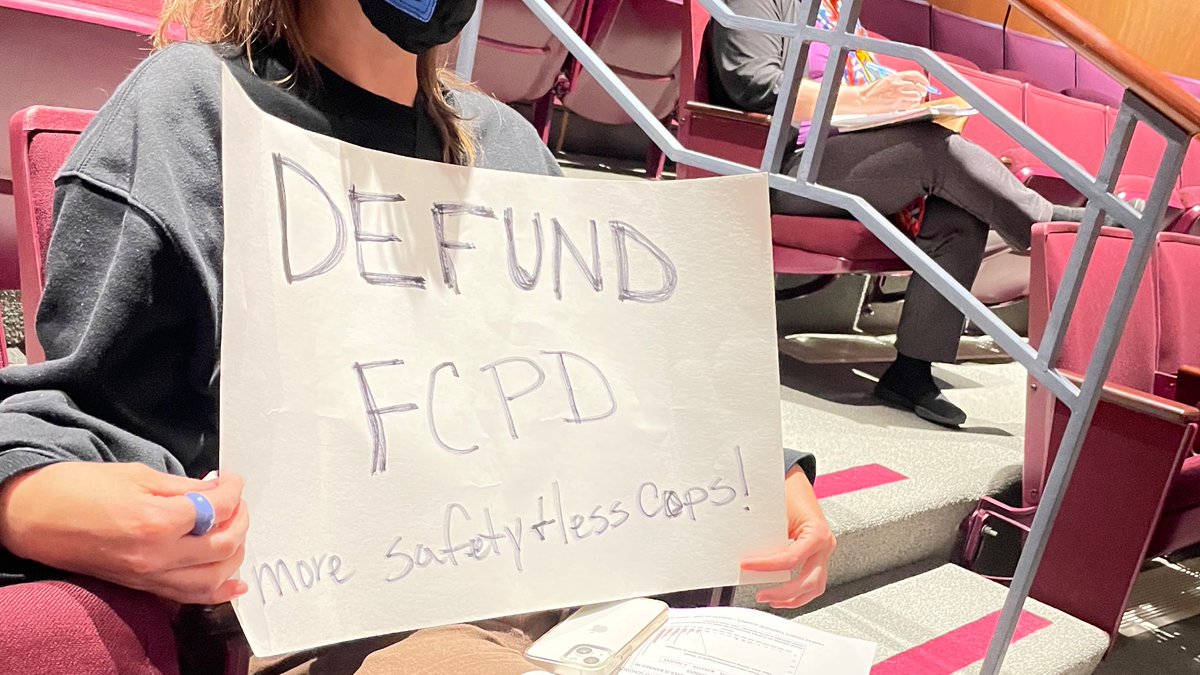 DEFUND
FCPD
more safety + less cops!